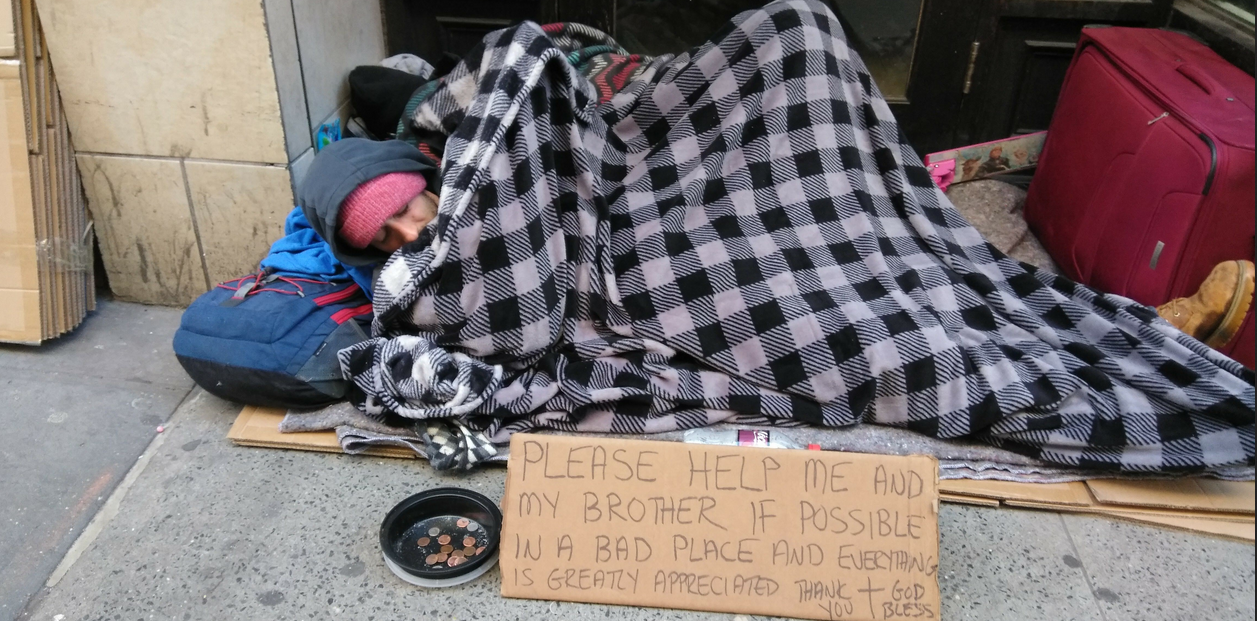 PLEASE HELP ME AND
MY BROTHER IF POSSIBLE
IN A BAD PLACE AND EVERYTHING
IS GREATLY APPRECIATED THANK YOU † GOD BLESS